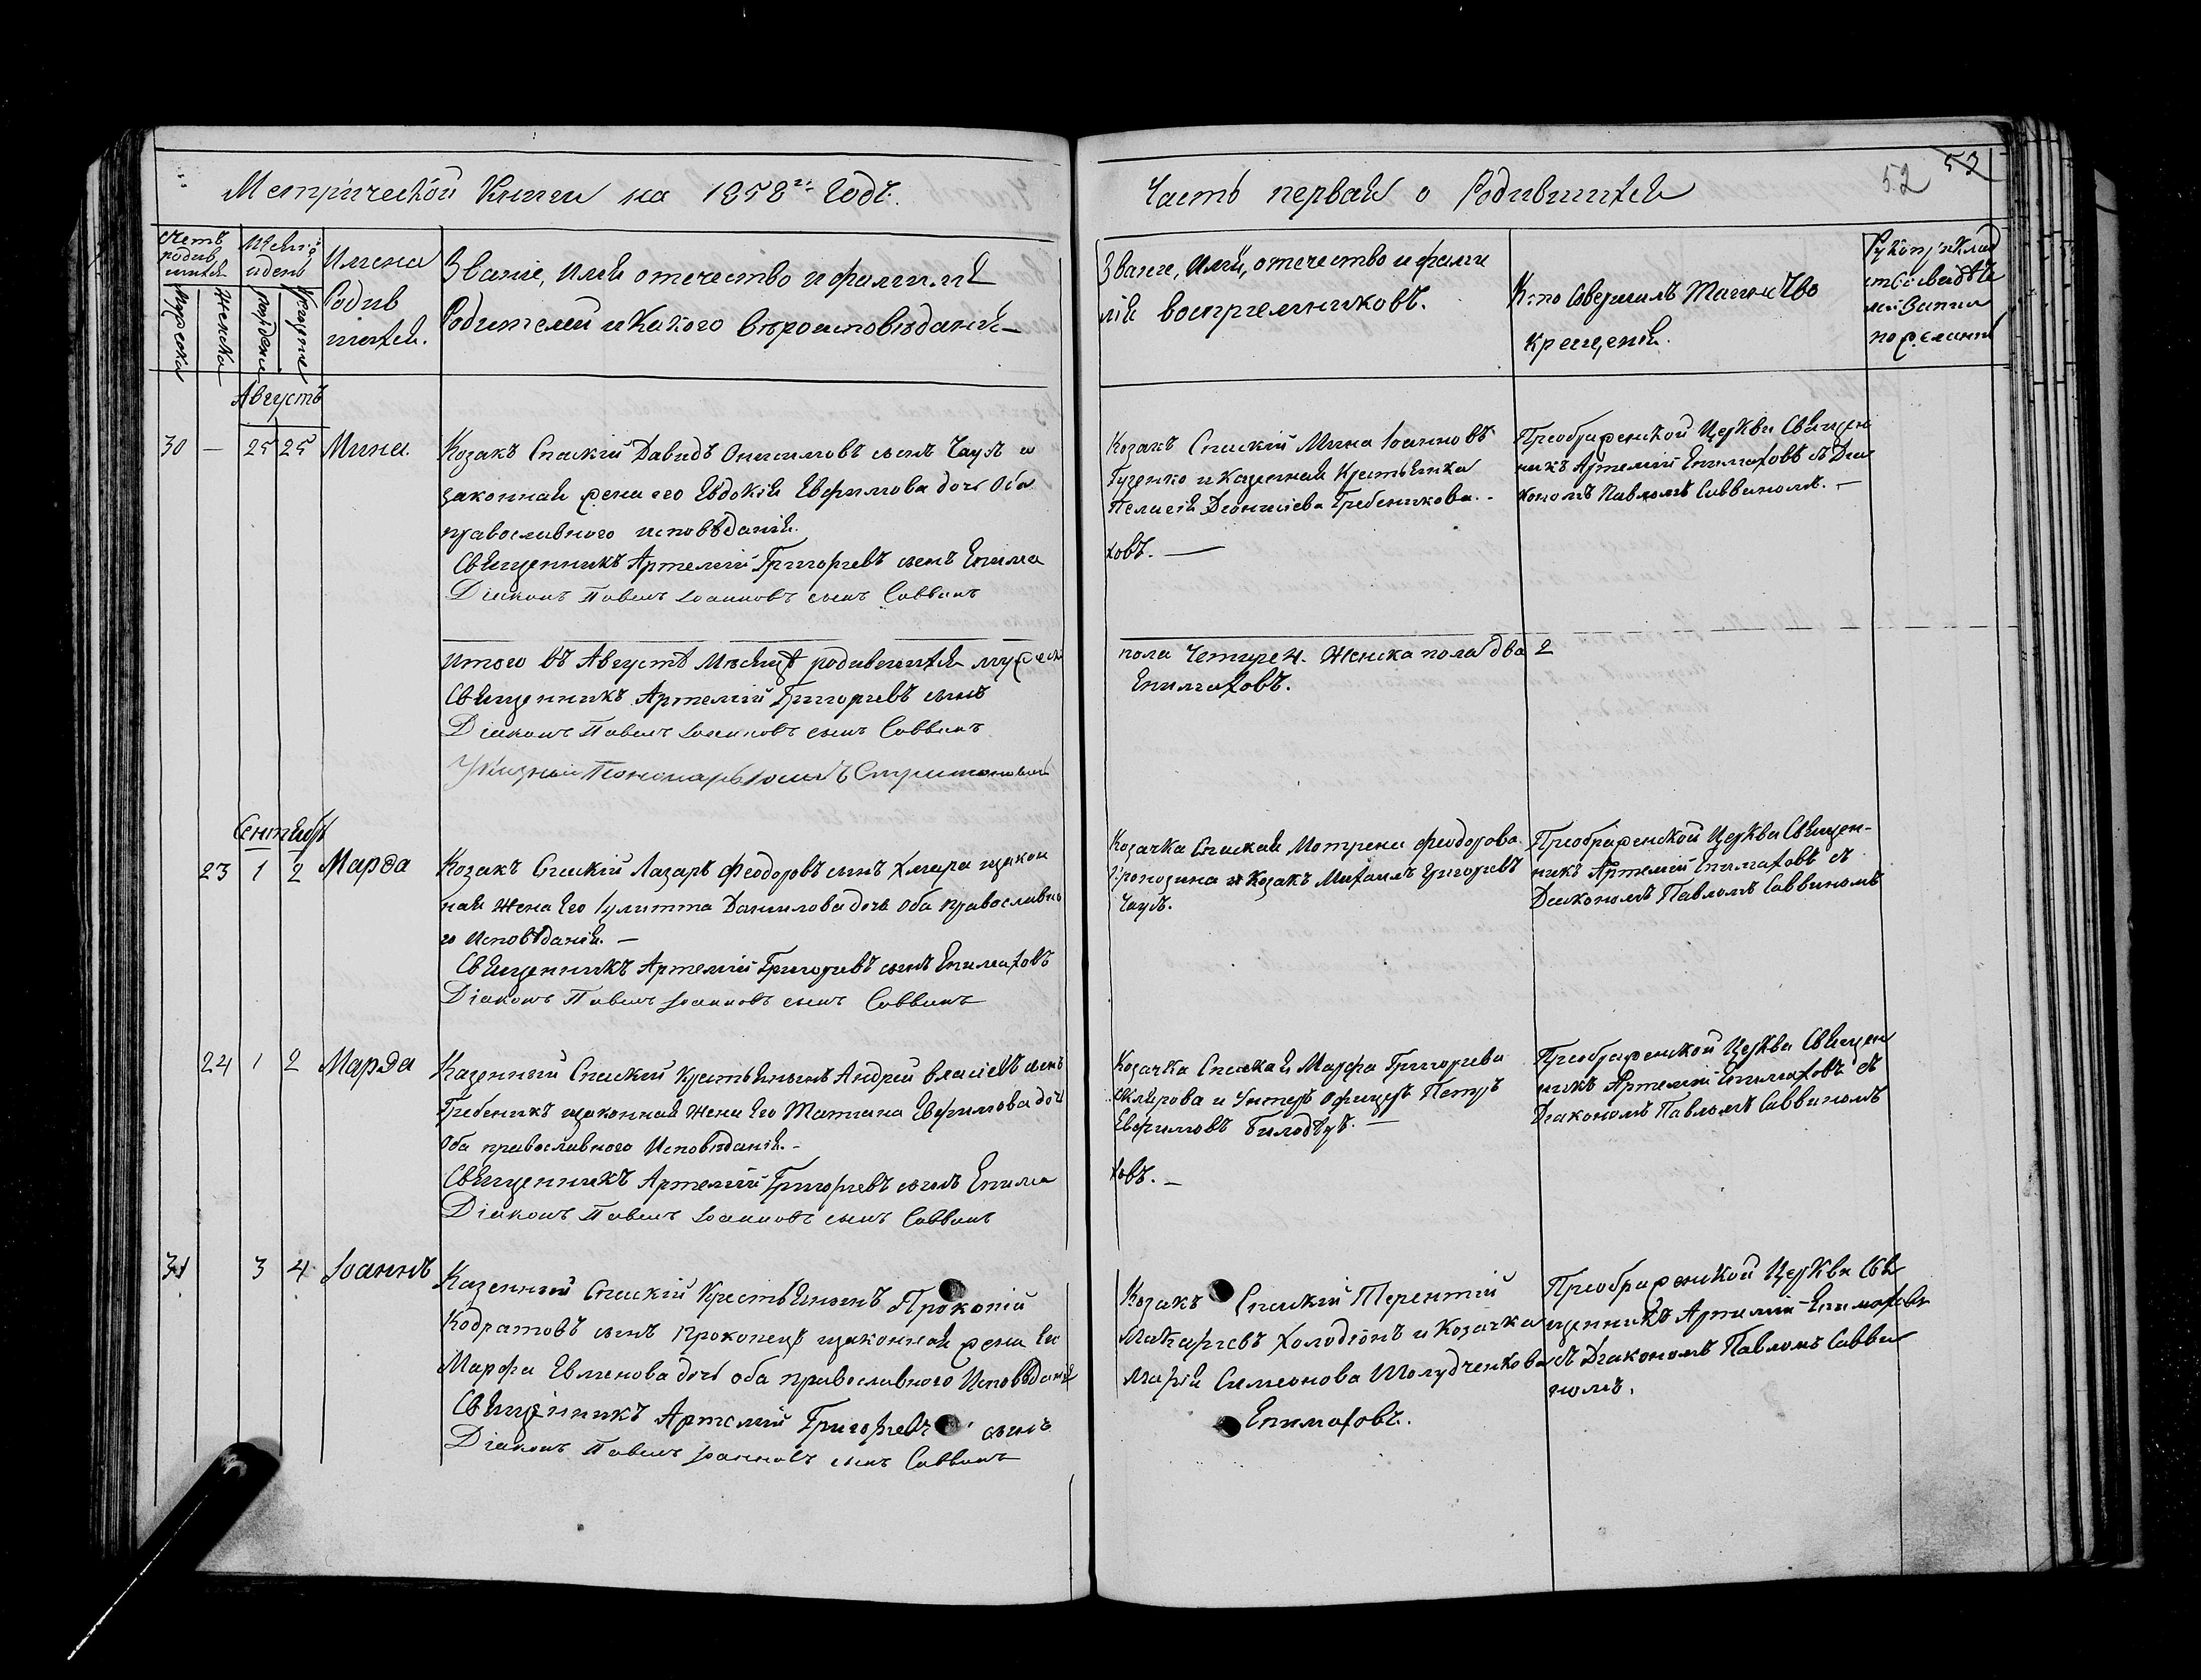 Метрической Книги на 1858й Годъ.
Часть первая о Родившихся
52 53
счетъ родив шихся
Мужеска
Женска
Месяц и день
рожденія
Крещенія
Имена
Родив
шихся.
Званіе, Имя отечество и фамилія
Родителей и Какого вѣроисповѣданія
Званіе, Имя, отечество и фами
лія воспріемниковъ.
Кто Совершилъ Таинство
крещенія.
Рукоприклад
ство свидѣте
лей Записи
по желанію
Августъ
30 — 25 25 Мина.
Козакъ Спаскій Давидъ Онисимовъ сынъ Чауъ и
законная жена его Евдокія Евфимова дочь Оба
православного исповѣданія.
Священникъ Артемій Григорьевъ сынъ Епима
Діаконъ Павелъ Іоанновъ сынъ Саввинъ
Козакъ Спаскій Мина Іоанновъ
Гуженко и Казенная Крестьянка
Пелагея Діонисіева Гребеникова. -
ховъ. —
Преображенской Церкви Священ
никъ Артемій Епимаховъ съ Діа
кономъ Павломъ Саввиномъ. —
Итого въ Августѣ Мѣсяцѣ родившихся мужеск
Священникъ Артемій Григорьевъ сынъ
Діаконъ Павелъ Іоанновъ сынъ Саввинъ
Пономарь
пола Четыре 4. Женска пола два 2
Епимаховъ.
Сентябрь
23 1 2 Марѳа
Козакъ Спаскій Лазаръ Феодоровъ сынъ Хмара и закон
ная Жена Его Іулитта Данилова дочь Оба Православно
го Исповѣданія. —
Священникъ Артемій Григорьевъ сынъ Епимаховъ
Діаконъ Павелъ Іоанновъ сынъ Саввинъ
Козачка Спаская Мотрена Феодорова
и Козакъ Михаилъ Григорьевъ
Чауъ.
Преображенской Церкви Священ-
никъ Артемій Епимаховъ съ
Діакономъ Павломъ Саввиномъ
24 1 2 Марѳа
Казенный Спаскій Крестьянинъ Андрей Власіевъ сынъ
Гребеникъ и законная Жена Его Татіана Евфимова дочь
Оба православного Исповѣданія. -
Священникъ Артемій Григорьевъ сынъ Епима
Діаконъ Павелъ Іоанновъ сынъ Саввинъ
Козачка Спаская Марфа Григорьева
Шклярова и Унтеръ Офицеръ Петръ
Евфимовъ Билодѣдъ. —
ховъ. —
Преображенской Церкви Священ
никъ Артемій Епимаховъ съ
Діакономъ Павломъ Саввиномъ
31 3 4 Іоаннъ
Казенный Спаскій Крестьянинъ Прокопій
Кодратовъ сынъ Прокопецъ и законная жена Его
Марфа Евменова дочь оба православного Исповѣданія
Священникъ Артемій Григорьевъ сынъ
Діаконъ Павелъ Іоанновъ сынъ Саввинъ
Козакъ Спаскій Терентій
Макарьевъ Холодіонъ и Козачка
Марія Симеонова Шолудченкова
Епимаховъ.
Преображенской Церкви Свя
щенникъ Артемій Епимаховъ
съ Діакономъ Павломъ Савви
номъ.